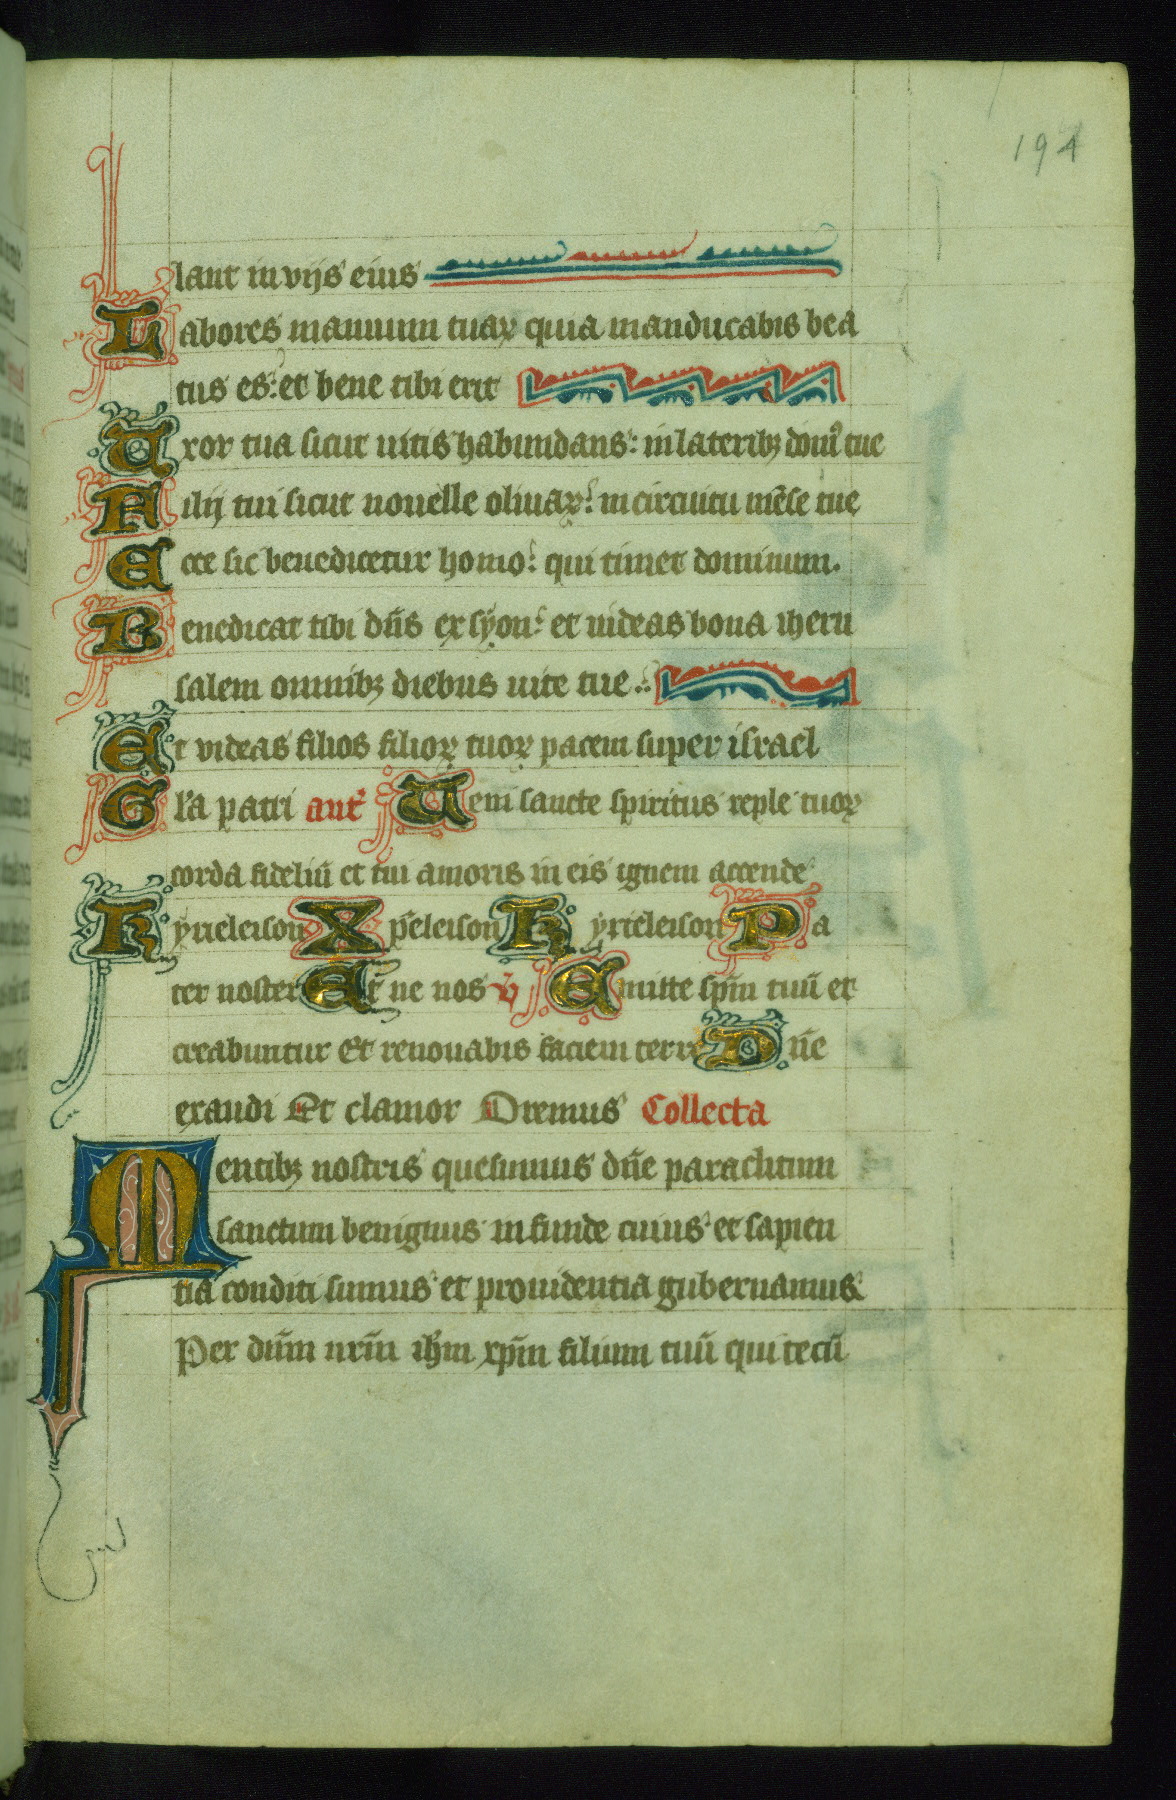 194
lant in vijs eius
Labores manuum tuaꝝ quia manducabis bea
tus es: et bene tibi erit
Uxor tua sicut uitis habundans: in lateribꝫ domꝰ tue
Filij tui sicut nouelle oliuaꝝ: in circuitu mēse tue
Ecce sic benedicetur homo: qui timet dominum.
Benedicat tibi dn̄s ex syon: et uideas bona iheru
salem omnibꝫ diebus uite tue
Et videas filios filioꝝ tuoꝝ pacem super israel
Gl'a patri ant' Ueni sancte spiritus reple tuoꝝ
corda fideliū et tui amoris in eis ignem accende
Kyrieleison Xp̄eleison Kyrieleison Pa
ter noster Et ne nos v̄ Emitte sp̄m tuū et
creabuntur Et renouabis faciem terre Dn̄e
exaudi Et clamor Oremus Collecta
Mentibꝫ nostris quesumus dn̄e paraclitum
sanctum benignus infunde cuius et sapien
tia conditi sumus et prouidentia gubernamur
Per dn̄m nr̄m ih̄m xp̄m filium tuū qui tecū